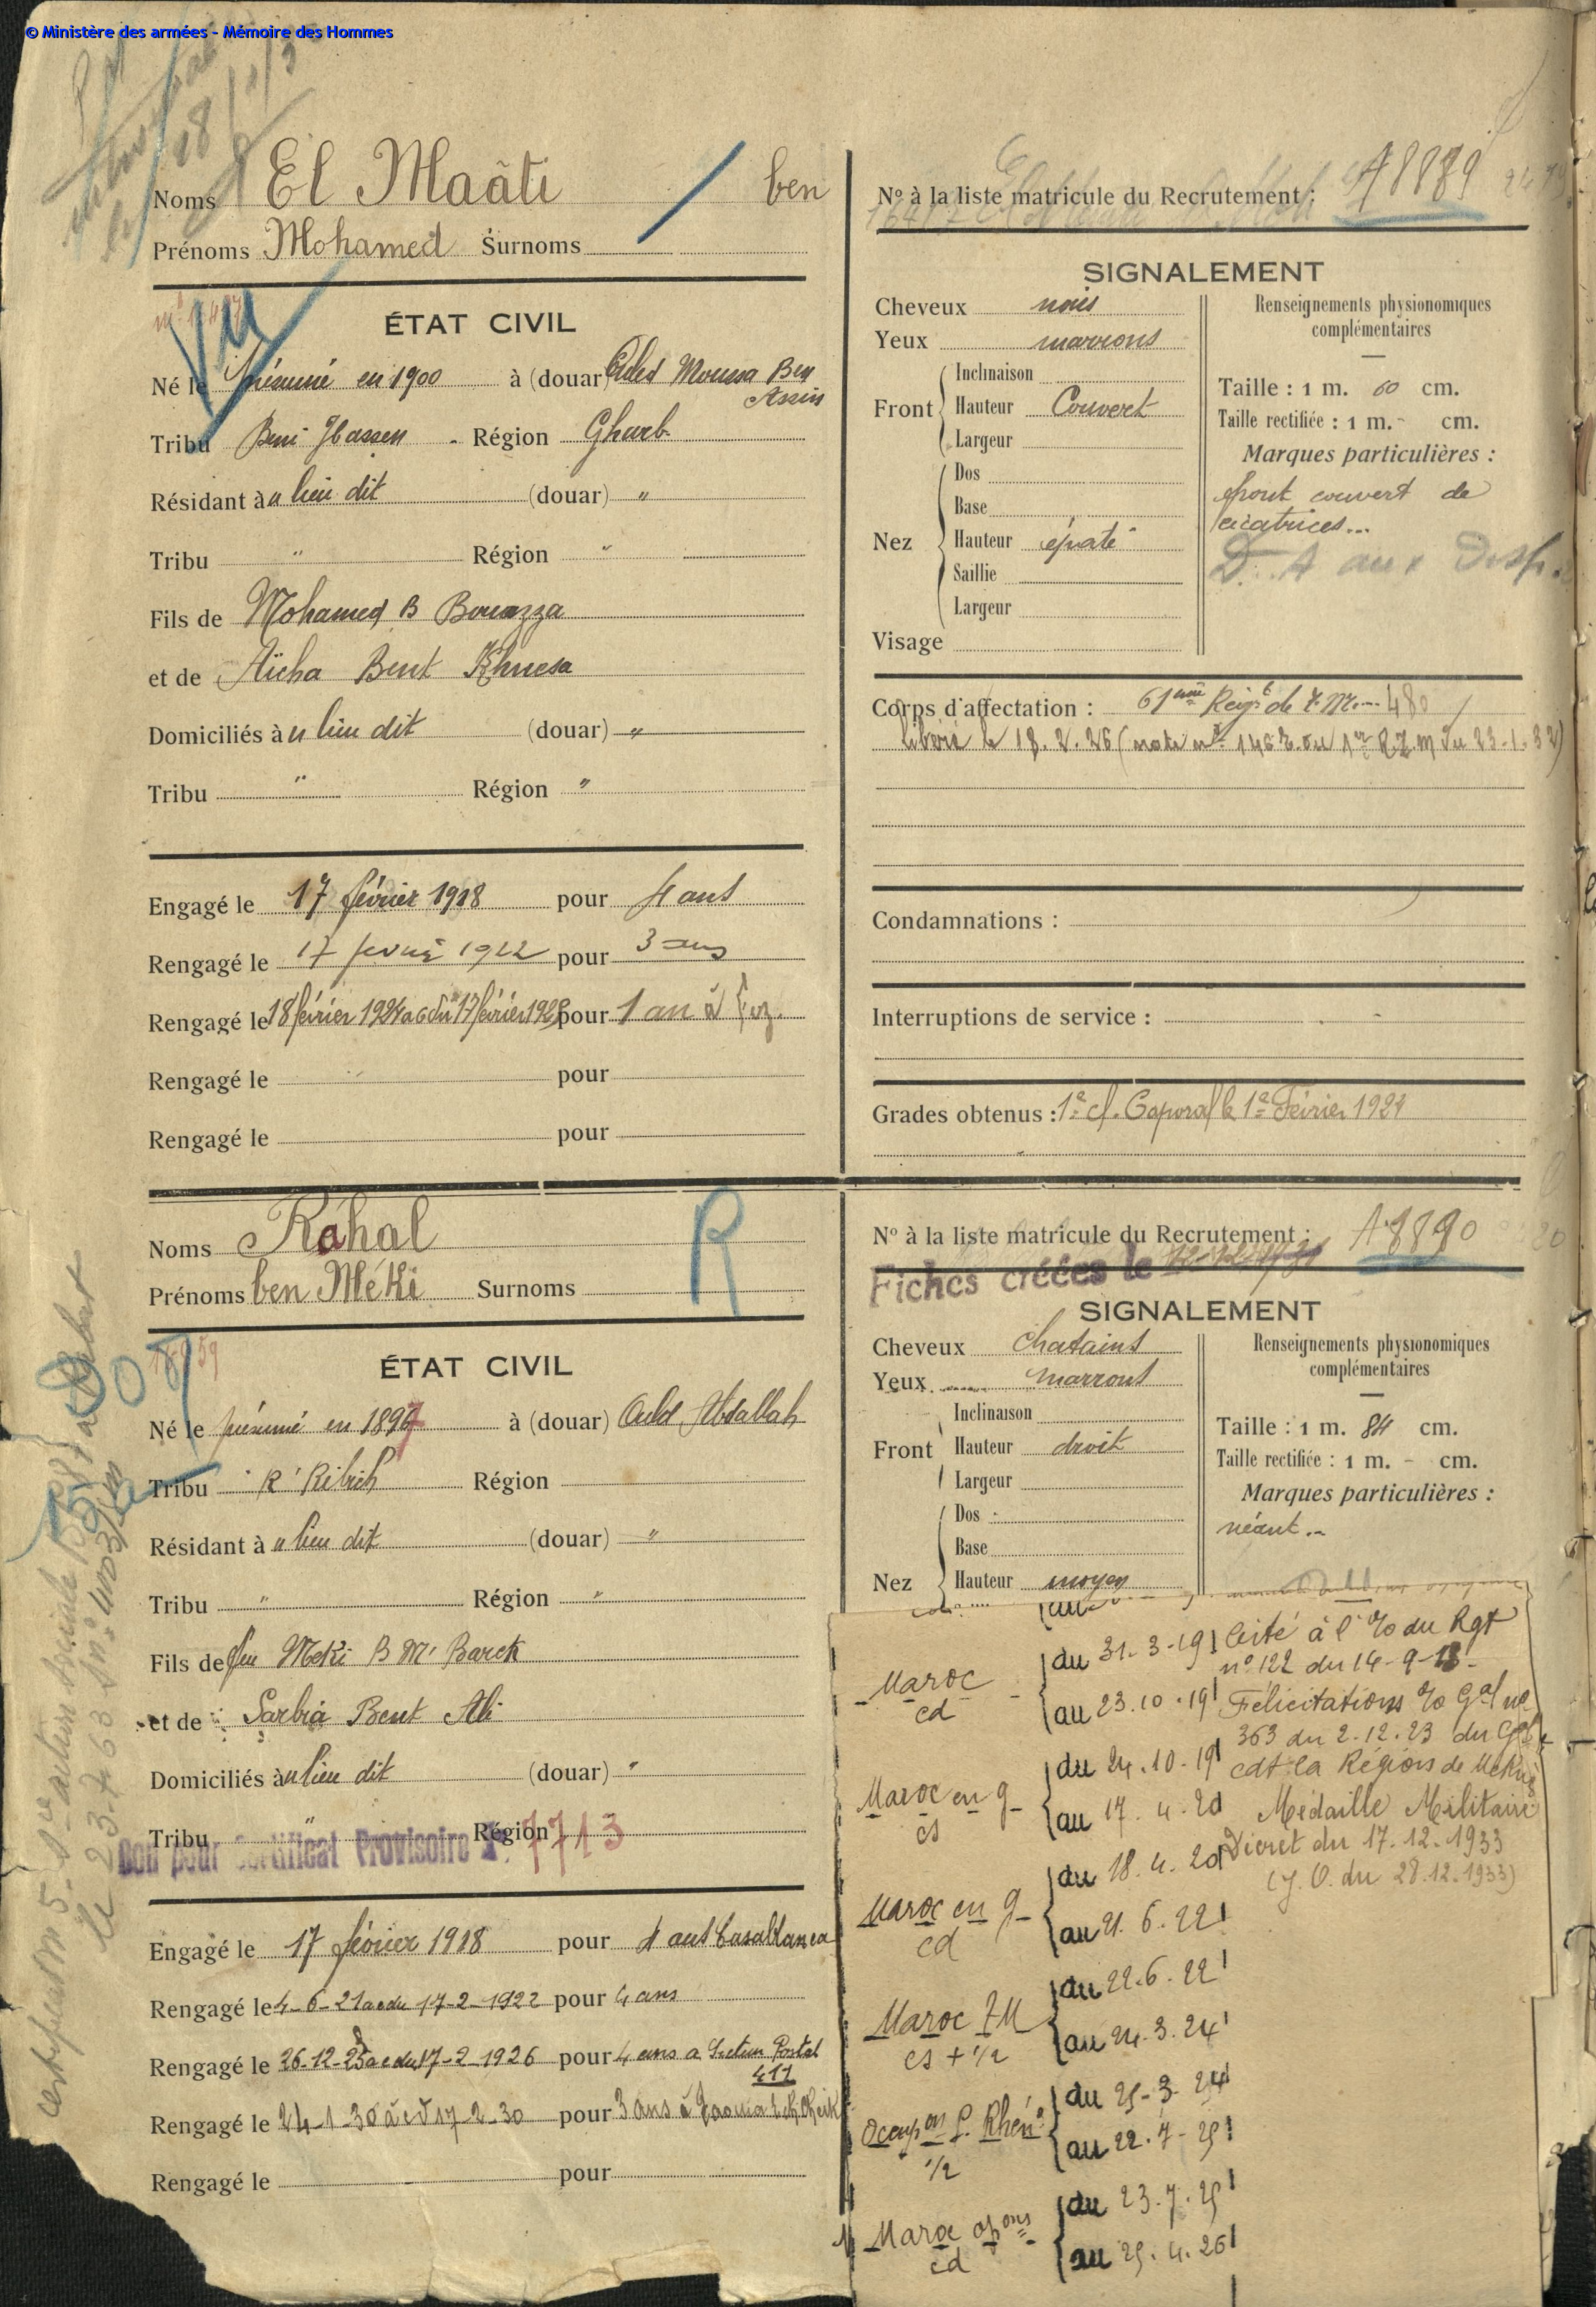 © Ministère des armées - Mémoire des Hommes
Noms El Maâti ben
Prénoms Mohamed Surnoms
ÉTAT CIVIL
Né le présumé en 1900 à (douar) Ouled Moussa Ben Assin
Tribu Beni Hassen Région Gharb
Résidant à u lieu dit (douar) "
Tribu " Région "
Fils de Mohamed B Bouazza
et de Aïcha Bent Khnesa
Domiciliés à u lieu dit (douar) "
Tribu " Région "
Engagé le 17 février 1918 pour 4 ans
Rengagé le 17 février 1922 pour 3 ans
Rengagé le 18 février 1924 a c du 17 février 1925 pour 1 an à Fez.
Rengagé le pour
Rengagé le pour
N° à la liste matricule du Recrutement : A8889
SIGNALEMENT
Cheveux noirs
Yeux marrons
Front
Inclinaison
Hauteur Couvert
Largeur
Nez
Dos
Base
Hauteur épaté
Saillie
Largeur
Visage
Renseignements physionomiques
complémentaires
Taille : 1 m. 60 cm.
Taille rectifiée : 1 m. - cm.
Marques particulières :
front couvert de
cicatrices...
D. A aux Disp.
Corps d'affectation : 61ème Regt de T. M. 480
libéré le 18. 2. 26 (note n° 140 du 1er R.T.M du 23.1.32)
Condamnations :
Interruptions de service :
Grades obtenus : 1e cl. Caporal le 1e Février 1921
Noms Rahal
Prénoms ben Méki Surnoms R
ÉTAT CIVIL
Né le présumé en 1897 à (douar) Ould Abdallah
Tribu R'Ribich Région
Résidant à u lieu dit (douar) "
Tribu " Région "
Fils de feu Meki B M' Barek
et de Sarbia Bent Ali
Domiciliés à u lieu dit (douar) "
Tribu " Région
Bon pour Certificat Provisoire N° 7713
Engagé le 17 février 1918 pour 4 ans Casablanca
Rengagé le 4-6-21 a c du 17-2-1922 pour 4 ans
Rengagé le 26-12-25 a c du 17-2-1926 pour 4 ans a Secteur Postal 411
Rengagé le 24-1-30 à c d 17-2-30 pour 3 ans à Zaouia Ech Cheik
Rengagé le pour
N° à la liste matricule du Recrutement : A8890
Fiches créées le
SIGNALEMENT
Cheveux chatains
Yeux marrons
Front
Inclinaison
Hauteur droit
Largeur
Nez
Dos
Base
Hauteur moyen
Renseignements physionomiques
complémentaires
Taille : 1 m. 84 cm.
Taille rectifiée : 1 m. - cm.
Marques particulières :
néant.-
Maroc cd du 31.3.19 au 23.10.19
Maroc en g cs du 24.10.19 au 17.4.20
Maroc en g cd du 18.4.20 au 21.6.22
Maroc TM cs + 1/2 du 22.6.22 au 24.3.24
Occupon P. Rhén 1/2 du 25-3-24 au 22.7-25
Maroc opons cd du 23.7.25 au 25.4.26
Cité à l'%o du Rgt
n° 122 du 14-9-18-
Félicitations %o Gal n°
363 du 2.12.23 du Gal
cdt la Région de Meknès
Médaille Militaire
Décret du 17.12.1933
(J.O. du 28.12.1933)